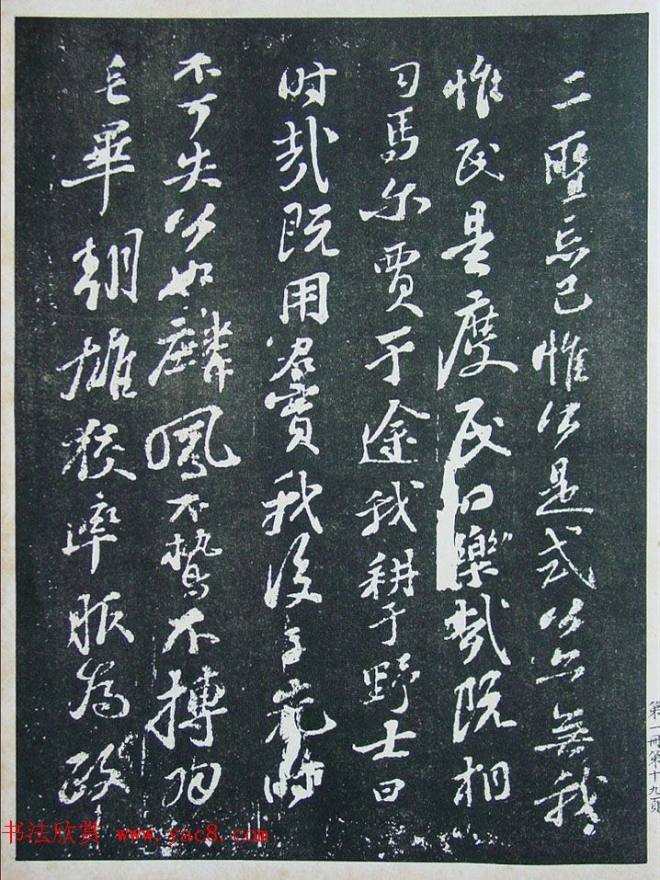 二聖忘己惟公是式公亦無我
惟民是度民曰樂哉既相
司馬尔賈于途我耕于野士曰
时哉既用君實我後子先时
不可失公如麟鳳不鷙不搏羽
毛畢朝雄狡率服為政
第一冊第十九頁
书法欣赏 www.yac8.com